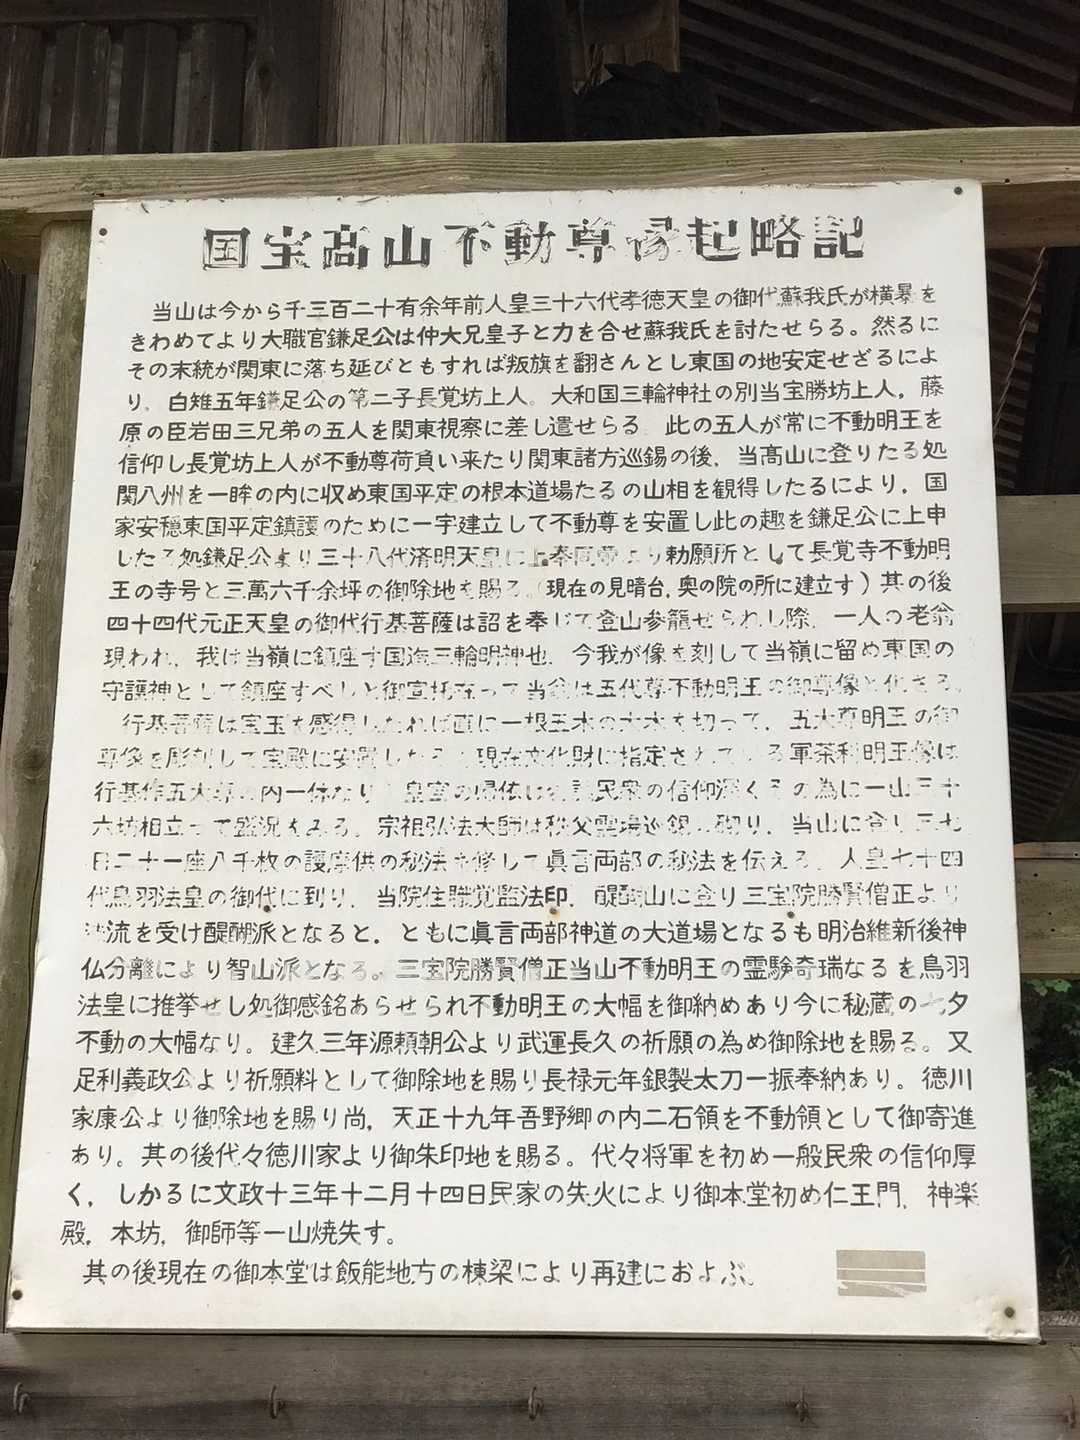 国宝高山不動尊縁起略記
当山は今から千三百二十有余年前人皇三十六代孝徳天皇の御代蘇我氏が横暴を
きわめてより大職官鎌足公は仲大兄皇子と力を合せ蘇我氏を討たせらる。然るに
その末統が関東に落ち延びともすれば叛旗を翻さんとし東国の地安定せざるによ
り、白雉五年鎌足公の第二子長覚坊上人。大和国三輪神社の別当宝勝坊上人，藤
原の臣岩田三兄弟の五人を関東視察に差し遣せらる 此の五人が常に不動明王を
信仰し長覚坊上人が不動尊荷負い来たり関東諸方巡錫の後，当高山に登りたる処
関八州を一眸の内に収め東国平定の根本道場たるの山相を観得したるにより，国
家安穏東国平定鎮護のために一宇建立して不動尊を安置し此の趣を鎌足公に上申
したる処鎌足公より三十八代済明天皇に上奉同帝より勅願所として長覚寺不動明
王の寺号と三萬六千余坪の御除地を賜る。（現在の見晴台，奥の院の所に建立す）其の後
四十四代元正天皇の御代行基菩薩は詔を奉じて登山参籠せられし際，一人の老翁
現われ，我は当嶺に鎮座す国海三輪明神也，今我が像を刻して当嶺に留め東国の
守護神として鎮座すべしと御宣托在って当翁は五代尊不動明王の御尊像と化さる，
行基菩薩は宝玉を感得したれば直に一根三木の大木を切って，五大尊明王の御
尊像を彫刻して宝殿に安置したる 現在文化財に指定されている軍茶利明王像は
行基作五大尊の内一体なり 皇室の帰依は 民衆の信仰深くその為に一山三十
六坊相立って盛況をみる。宗祖弘法大師は秩父霊場巡錫 砌り，当山に登り三七
日二十一座八千枚の護摩供の秘法を修して眞言両部の秘法を伝える 人皇七十四
代鳥羽法皇の御代に到り，当院住職覚監法印，醍醐山に登り三宝院勝賢僧正より
法流を受け醍醐派となると，ともに眞言両部神道の大道場となるも明治維新後神
仏分離により智山派となる。三宝院勝賢僧正当山不動明王の霊験奇瑞なるを鳥羽
法皇に推挙せし処御感銘あらせられ不動明王の大幅を御納めあり今に秘蔵の七夕
不動の大幅なり。建久三年源頼朝公より武運長久の祈願の為め御除地を賜る。又
足利義政公より祈願料として御除地を賜り長禄元年銀製太刀一振奉納あり。徳川
家康公より御除地を賜り尚，天正十九年吾野郷の内二石領を不動領として御寄進
あり。其の後代々徳川家より御朱印地を賜る。代々将軍を初め一般民衆の信仰厚
く，しかるに文政十三年十二月十四日民家の失火により御本堂初め仁王門，神楽
殿，本坊，御師等一山焼失す。
其の後現在の御本堂は飯能地方の棟梁により再建におよぶ。